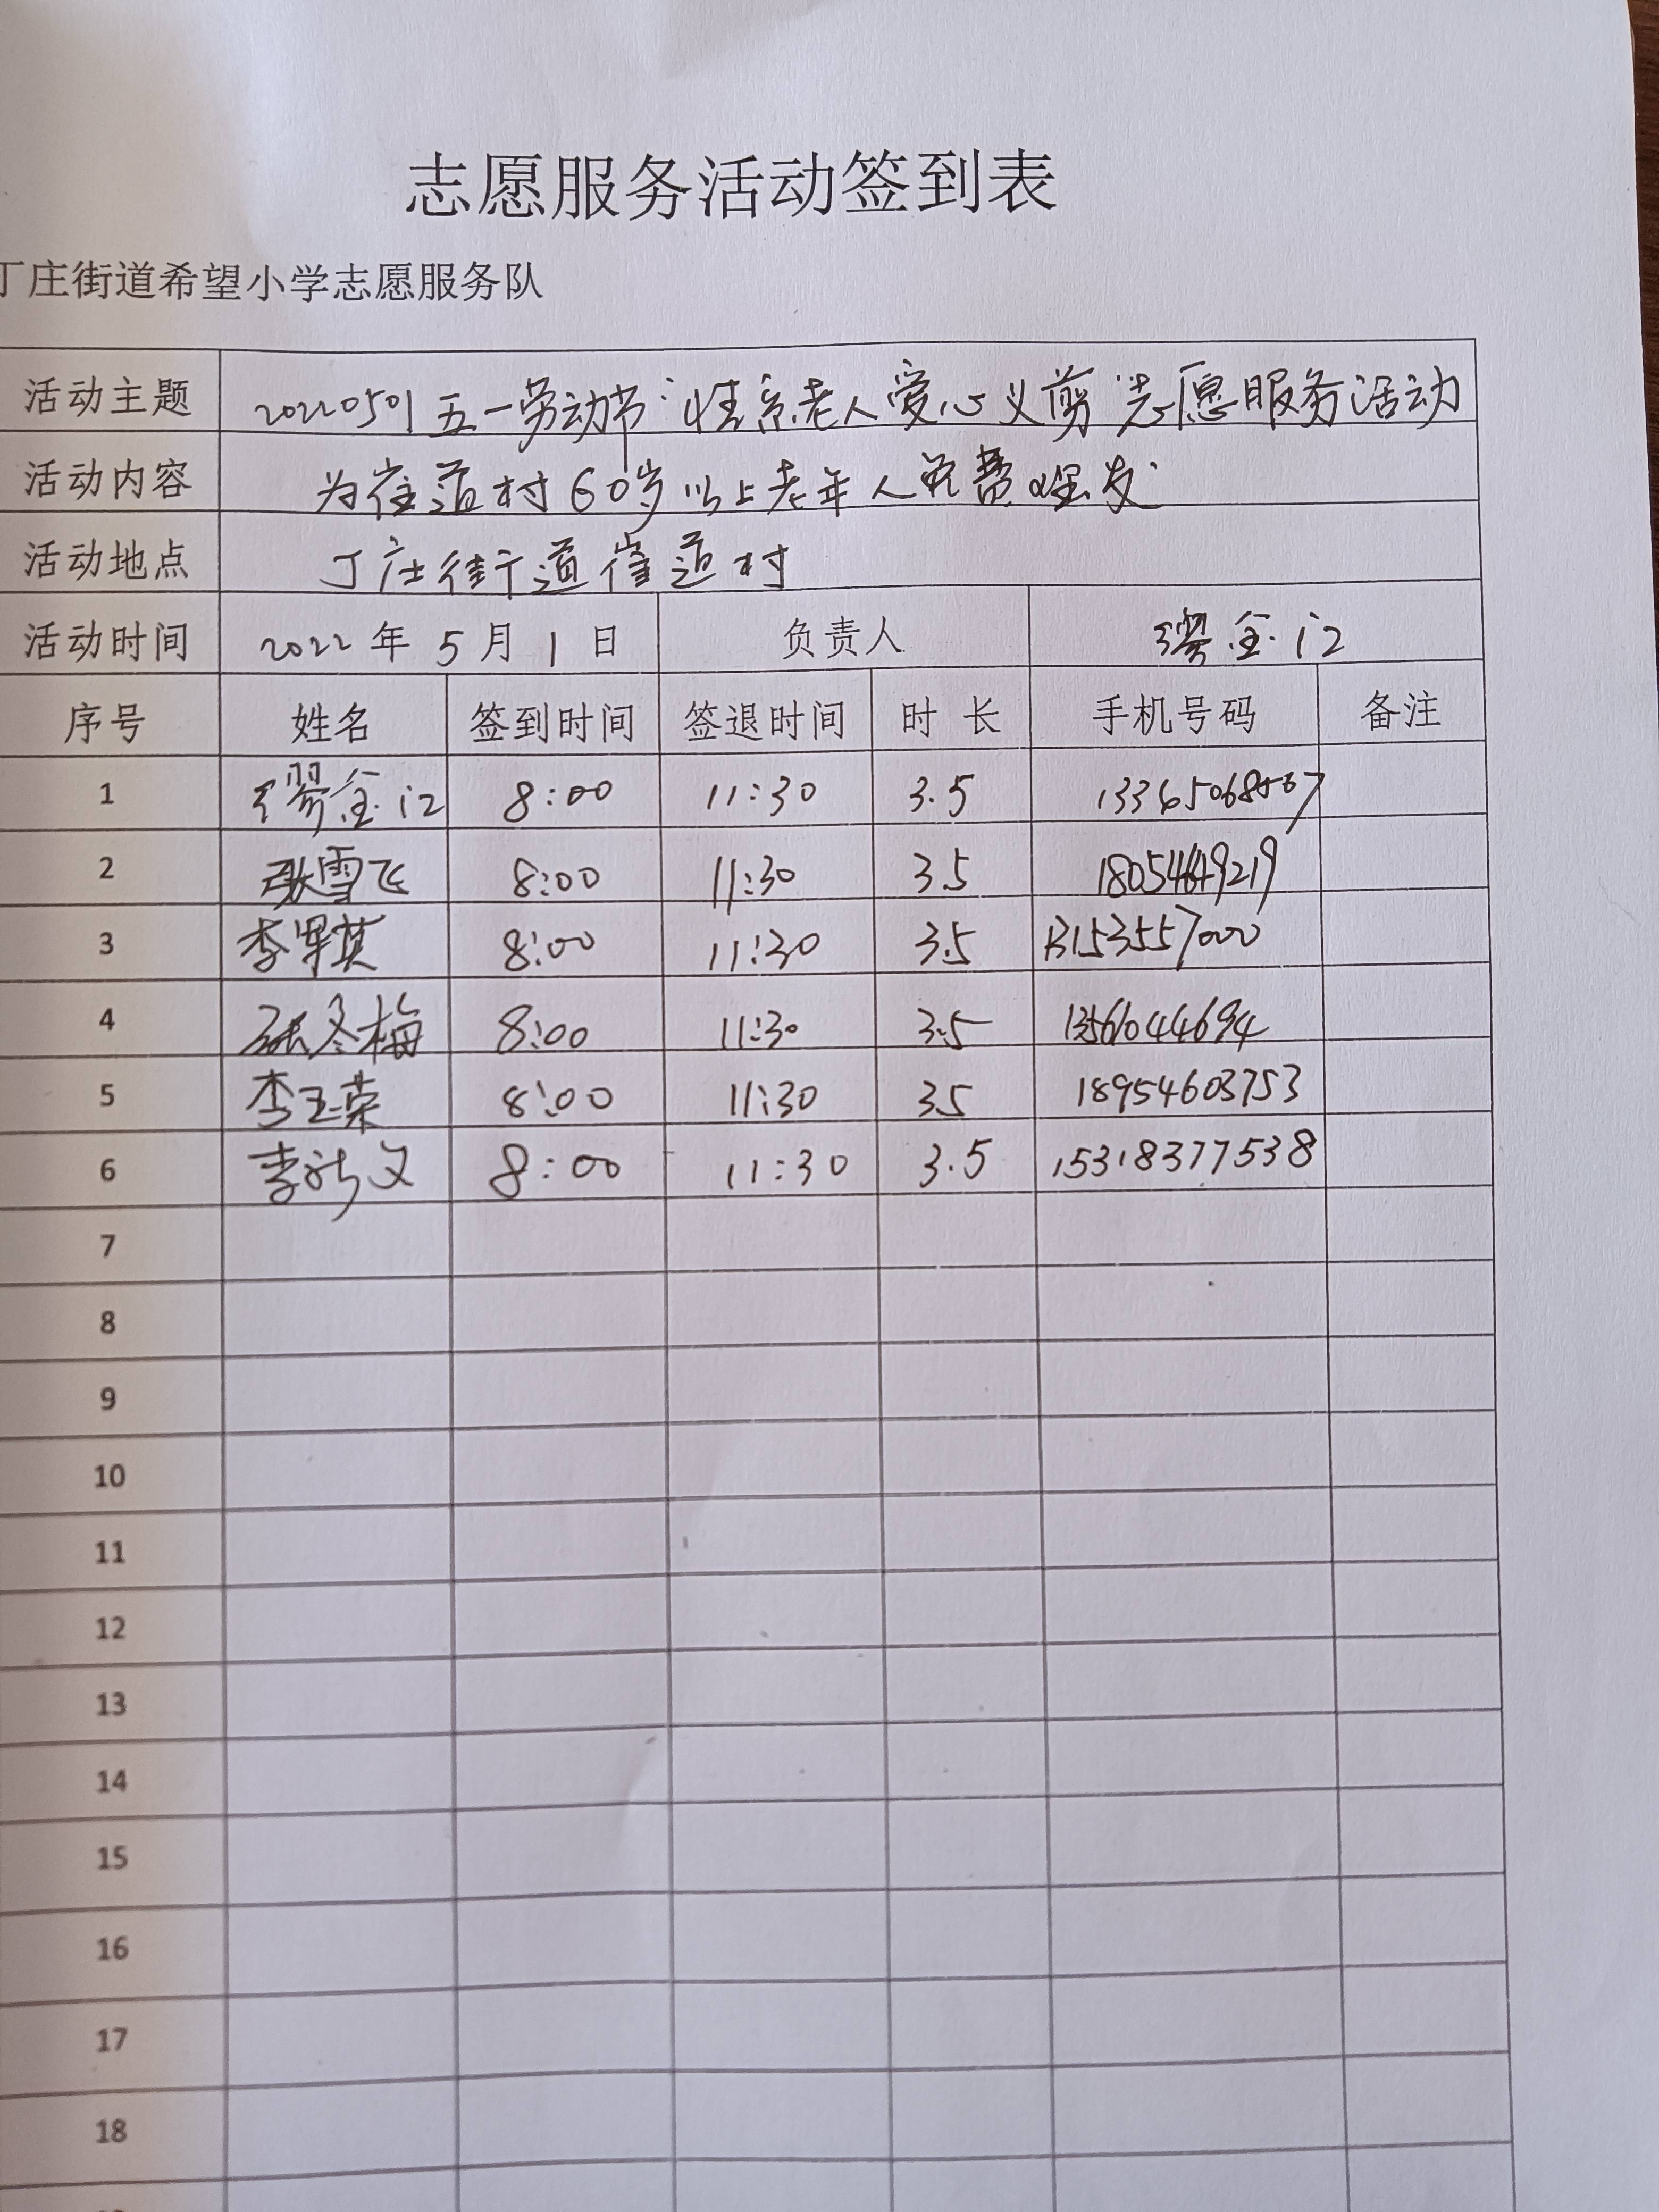 志愿服务活动签到表
丁庄街道希望小学志愿服务队
活动主题 20220501 五一劳动节"情系老人爱心义剪"志愿服务活动
活动内容 为崔道村60岁以上老年人免费理发
活动地点 丁庄街道崔道村
活动时间 2022年5月1日 负责人 缪金江
序号 姓名 签到时间 签退时间 时 长 手机号码 备注
1 缪金江 8:00 11:30 3.5
2 耿雪飞 8:00 11:30 3.5
3 8:00 11:30 3.5 13153557000
4 张冬梅 8:00 11:30 3.5
5 李玉荣 8:00 11:30 3.5 18954603753
6 李新文 8:00 11:30 3.5 15318377538
7
8
9
10
11
12
13
14
15
16
17
18